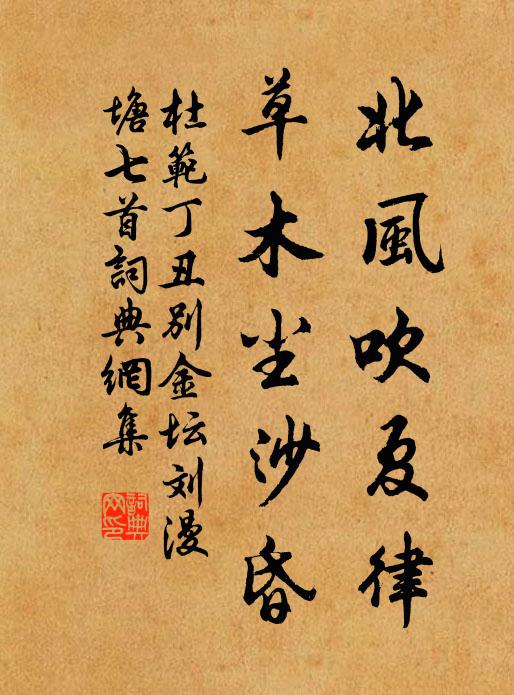 北風吹夏律
草木尘沙昏
杜範丁丑別金坛刘漫
塘七首詞典網集
詞典網印